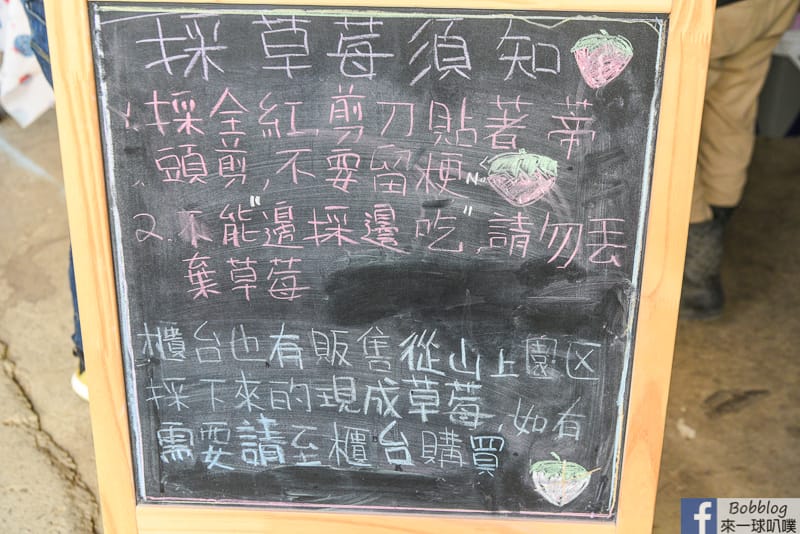 採草莓須知
1.採全紅,剪刀貼著蒂
頭剪,不要留梗 No
2.不能"邊採邊吃",請勿丟
棄草莓
櫃台也有販售從山上園区
採下來的現成草莓,如有
需要請至櫃台購買
Bobblog
來一球叭噗